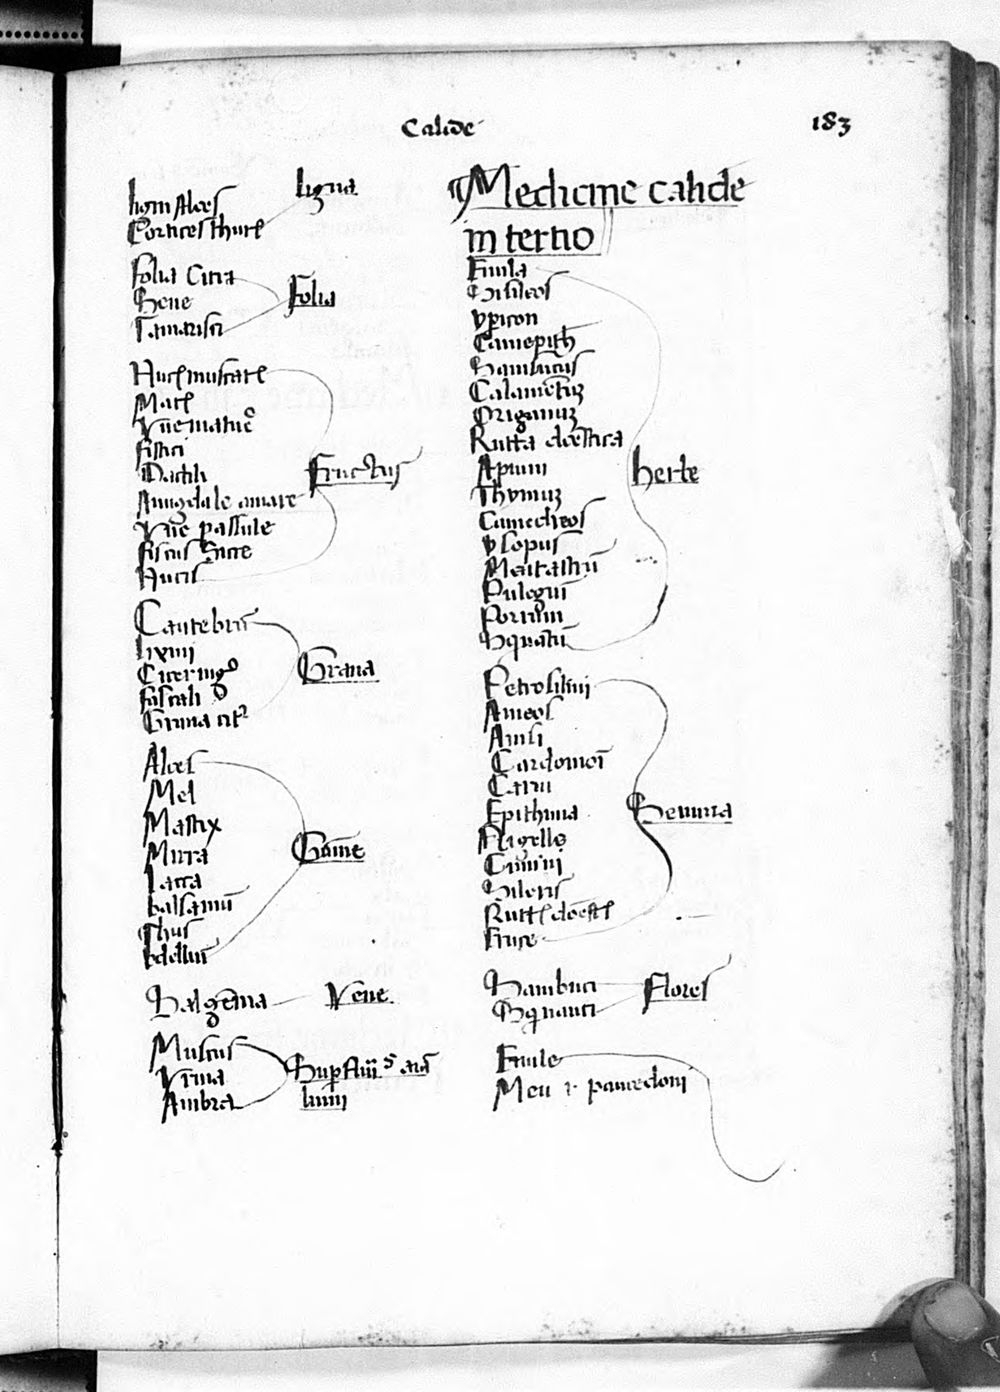 Calide
183
ligni Aloes
Cortices thuris
ligna
Folia Citri
Sene
Tamarisci
Folia
Nuces muscate
Maces
Vue mature
fistici
Dactili
Amigdale amare
Vue passule
ficus sicce
Nuces
Fructus
Cantebrum
lixiui
Grana
Aloes
Mel
Mastix
Mirra
lacca
balsamum
Thus
bdellium
Gumme
Galgenna
Vene
Muscus
Vrina
Ambra
Medicine calide
in tertio
Enula
Sisileos
ypicon
Camepith
Sambucus
Calamentum
Origanum
Rutta domestica
Apium
Thymum
Camedreos
ysopus
Mentastrum
Pulegium
Porrum
Squantum
herbe
Petrosilini
Ameos
Anisi
Cardomomi
Carui
Epithima
Nigelle
Cimini
Sileris
Rutte domestice
Eruce
Semina
Sambuci
Squinanti
Flores
Enule
Meu